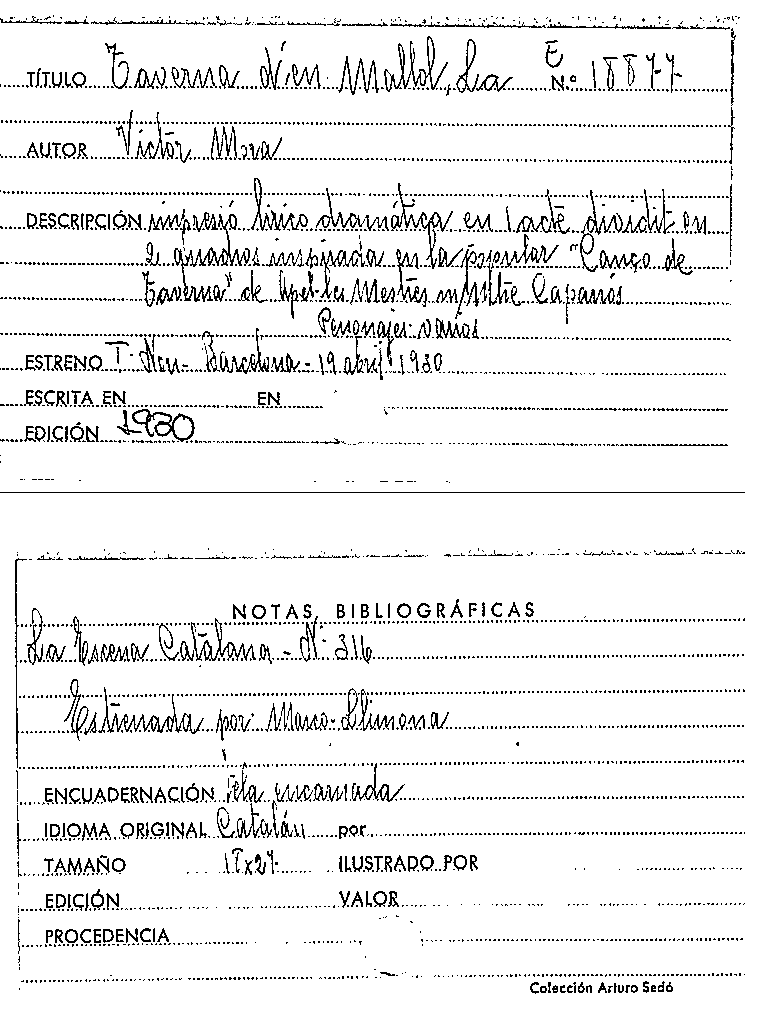 TÍTULO Taverna d'en Mallol, La E N.º 18877
AUTOR Victor Mora
DESCRIPCIÓN impresió lírico dramática en 1 acte dividit en
2 quadros inspirada en la popular "Canço de
Taverna" de Apel·les Mestres m/ Mtre Capanós
Personajes: varios
ESTRENO T. Nou - Barcelona - 19 abril 1930
ESCRITA EN EN
EDICIÓN 1930
NOTAS BIBLIOGRÁFICAS
La Escena Catalana - Nº 316
Estrenada por: Marco-Llimona
ENCUADERNACIÓN Tela encarnada
IDIOMA ORIGINAL Catalán por
TAMAÑO ILUSTRADO POR
EDICIÓN VALOR
PROCEDENCIA
Colección Arturo Sedó